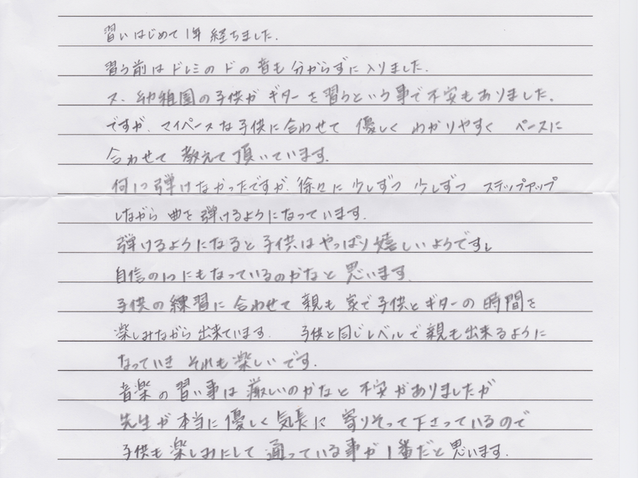 習いはじめて1年経ちました.
習う前はドレミのドの音も分からずに入りました.
又、幼稚園の子供がギターを習うという事で不安もありました.
ですが、マイペースな子供に合わせて 優しく わかりやすく ペースに
合わせて 教えて頂いています.
何に弾けなかったですが、徐々に少しずつ 少しずつ ステップアップ
しながら 曲を弾けるようになっています.
弾けるようになると子供はやっぱり嬉しいようですし
自信の1つにもなっているのかなと思います.
子供の練習に合わせて親も家で子供とギターの時間を
楽しみながら出来ています. 子供と同じレベルで親も出来るように
なっていき それも楽しいです.
音楽の習い事は厳しいのかなと不安がありましたが
先生が本当に優しく気長に寄りそって下さっているので
子供も楽しみにして通っている事が1番だと思います.